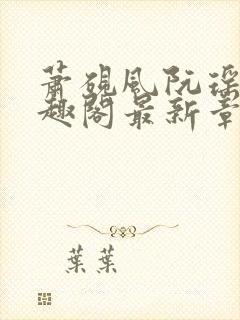 萧砚风阮瑶
趣阁最新章
葉葉